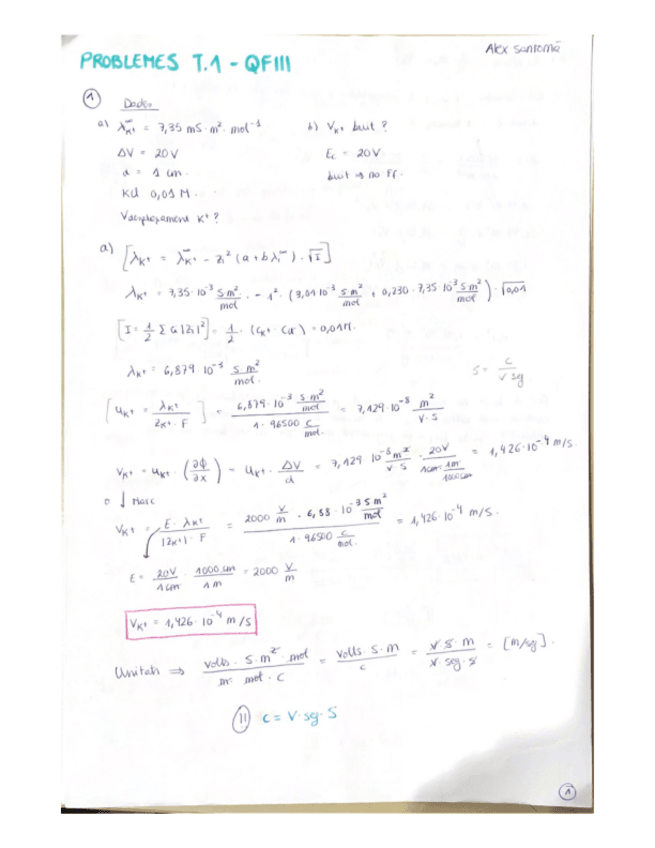 Alex Santomà
PROBLEMES T.1 - QFIII
1 Dades
a) λ∞K+ = 7,35 mS·m²·mol⁻¹ b) VK+ buit ?
ΔV = 20V Ec = 20V
d = 1 cm. buit → no Ff.
KCl 0,01 M.
K+ ?
a) [λK+ = λ∞K+ - Zi² (a + b λi∞)·√I]
λK+ = 7,35·10⁻³ S m²/mol - 1²·(3,01·10⁻³ S m²/mol + 0,230·7,35·10⁻³ S m²/mol)·√0,01
[I = 1/2 Σ Ci |Zi|²] = 1/2·(CK+ · Cα⁻) = 0,01M.
λK+ = 6,879·10⁻³ S m²/mol. S = C/V sg
[uK+ = λK+/ZK+·F] = 6,879·10⁻³ S m²/mol / 1·96500 C/mol = 7,129·10⁻⁸ m²/V·S
VK+ = uK+·(∂Φ/∂x) = uK+·ΔV/d = 7,129·10⁻⁸ m²/V S · 20V/1cm·1m/1000cm = 1,426·10⁻⁴ m/s.
o ↓ Marc
VK+ = E·λK+/|ZK+|·F = 2000 V/m · 6,88·10⁻³ S m²/mol / 1·96500 C/mol. = 1,426·10⁻⁴ m/s.
E = 20V/1cm · 1000 cm/1 m = 2000 V/m
VK+ = 1,426·10⁻⁴ m/s
Unitats ⇒ volts·S·m²·mol/m·mol·C = volts·S·m/C = V·S·m/V·sg·S = [m/sg].
!! C = V·sg·S
1